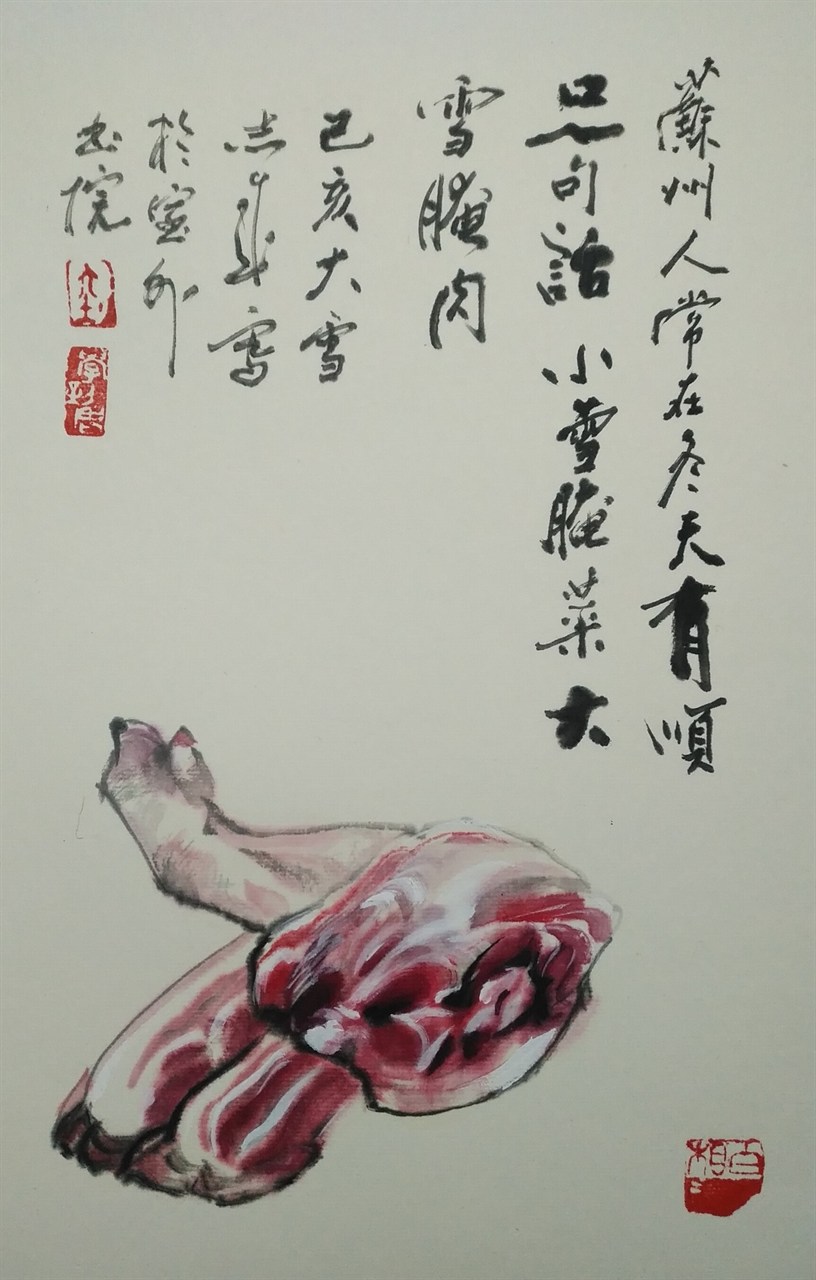 蘇州人常在冬天有順
口一句話小雪腌菜大
雪腌肉
己亥大雪
志寫
於外
书院